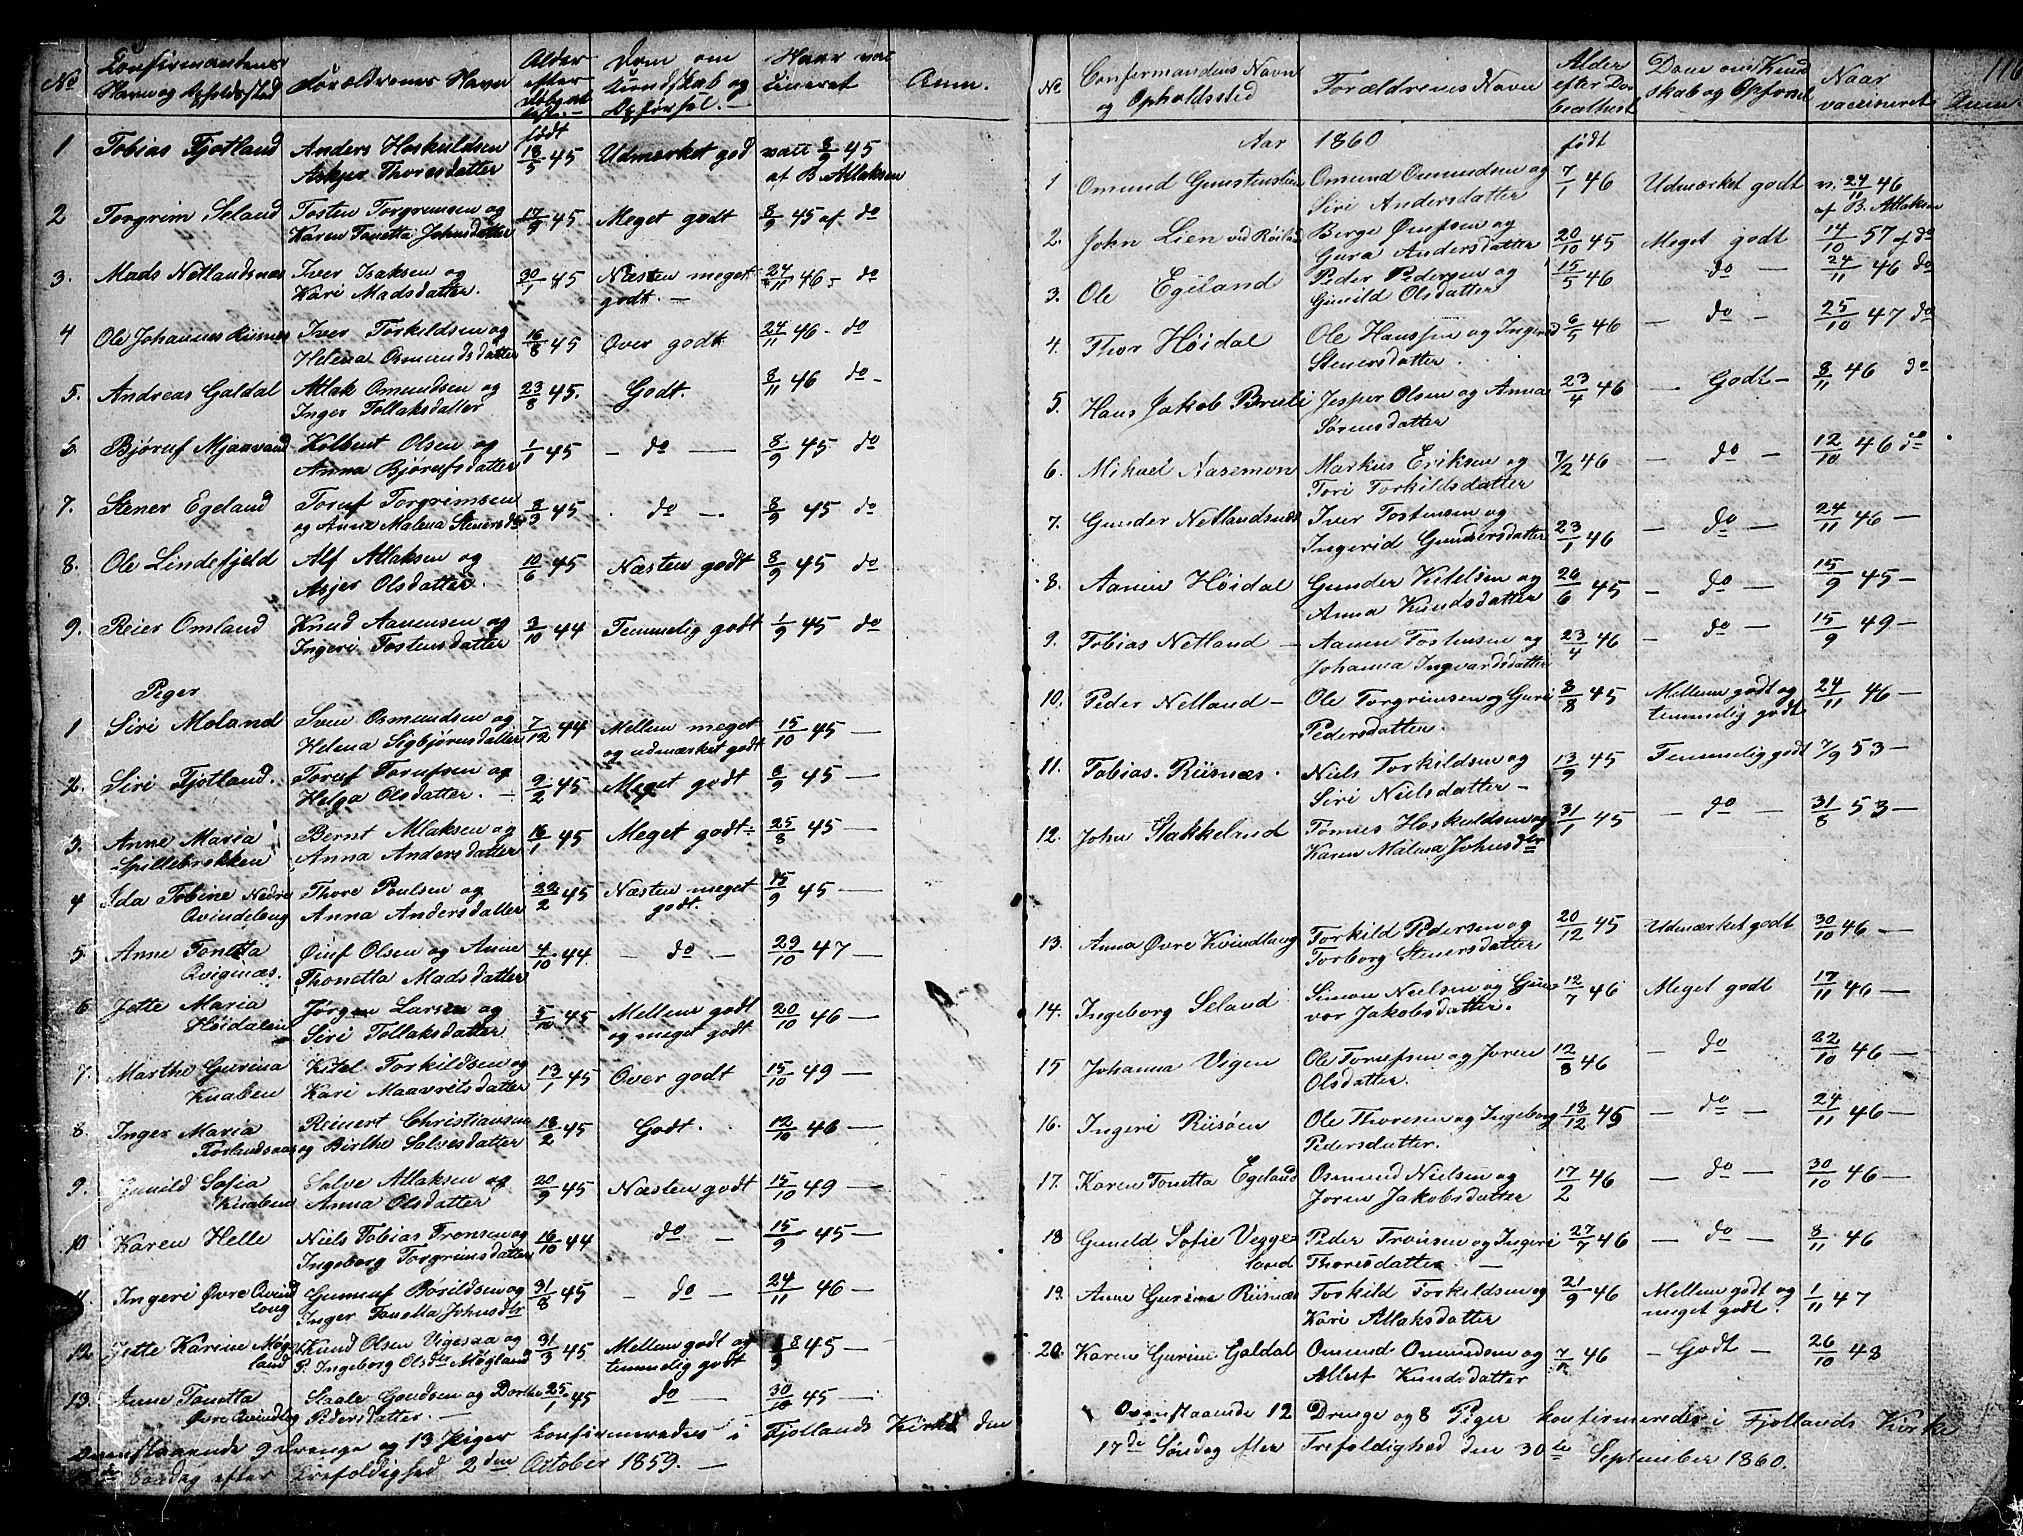 No
Confirmantens Navn og Opholdssted
Forældrenes Navn
Alder efter Døbeattest.
Dom om Kundskab og Opførsel.
Naar vaccineret
Anm.
født
1 Tobias Fjotland Anders Hoskuldsen 18/5 45 Udmærket god vatt 8/9 45
Askjer Thoresdatter af B. Atlaksen
2 Torgrim Seland Tosten Torgrimsen og 17/9 45 Meget godt 8/9 45 af do
Karen Tonetta Johnsdatter
3. Mads Netlandsnes Iver Isaksen og 30/1 45 Næsten meget 24/11 46 - do
Kari Madsdatter. godt. —
4 Ole Johannes Risnes Iver Torkildsen og 16/8 45 Over godt 24/11 46 - do
Helena Osmundsdatter
5. Andreas Galdal Atlak Omundsen og 23/8 45. Godt. 8/11 46 do -
Inger Tollaksdatter
6. Bjøruf Mjaavand Kolbent Olsen og 1/1 45 - do — 8/9 45 do
Anna Bjørufsdatter
7. Stener Egeland Toruf Torgrimsen 8/3 45 . do —. 8/9 45 do
og Anna Malena Stenersdtr
8. Ole Lindefjeld Alf Atlaksen og 10/6 45 Næsten godt 8/9 45 do
Asjer Olsdatter.
9. Reier Omland Knud Aanensen og 3/10 44 Temmelig godt 1/9 45 do
Ingeri Tostensdatter
Piger
1 Siri Moland Sven Osmundsen og 7/12 44 Mellem meget 15/10 45 —
Helena Sigbjørnsdatter og udmærket godt
2. Siri Fjotland. Toruf Torufsen og 2/2 45 Meget godt 8/9 45 —
Helga Olsdatter. —
3. Anne Maria Bernt Atlaksen og 16/1 45 Meget godt 25/8 45 —
Spillebrokken Anna Andersdatter
4 Ida Tobine Nedre Thore Poulsen og 22/2 45 Næsten meget 15/9 45 —
Qvindelaug Anna Andersdatter godt.
5 Anne Tonetta Øiuf Olsen og Anne 4/10 44. - do - 23/10 47 —
Qviginæs. Thonetta Madsdatter
6 Jette Maria Jørgen Larsen og 5/10 45 Mellem godt 20/10 46 —
Høidalen Siri Tollaksdatter og meget godt
7. Marthe Gurina Kitel Torkildsen og 13/1 45 Over godt 15/10 49 —
Knaben Kari Maavritsdatter
8. Inger Maria Reinert Christiansen 18/2 45 Godt. 12/10 46 —
og Birthe Salvesdatter
9. Gunild Sofia Salve Atlaksen og 20/9 45 Næsten godt 15/10 49 —
Knaben Anna Olsdatter
10 Karen Helle Niels Tobias Tronsen og 16/10 44 do — 15/9 45 —
Ingeborg Torgrimsdatter
11. Ingeri Øvre Qvind Gunuuf Børildsen og 31/8 45 - do — 24/11 46 —
laug Inger Tonetta Johnsdtr
12. Jette Karine Møg Knud Olsen Vigesaa og 31/3 45 Mellem godt og 8 45 —
land P. Ingeborg Olsdtr Møgland temmelig godt
13. Anne Tonetta Staale Gundsen og Dorthe 25/1 45 do — 30/10 45 —
Øvre Qvindlog Pedersdatter. —
Ovenstaaende 9 Drenge og 13 Piger konfirmeredes i Fjotlands Kirke den
Søndag efter Trefoldighed 2den October 1859. —
116
No
Confirmandens Navn og Opholdssted
Forældrenes Navn
Alder efter Døbeattest
Dom om Kundskab og Opførsel
Naar vaccineret
Anm.
Aar 1860 født
1 Omund Omund Osmundsen og 7/1 46 Udmærket godt v. 24/11 46
Siri Andersdatter af B. Atlaksen
2. John Lien ved Røiland Berge Øiufsen og 20/10 45 Meget godt 14/10 57 af do
Gura Andersdatter
3. Ole Egeland Peder Pedersen og 15/5 46 do — 24/11 46 do
Gunild Olsdatter
4. Thor Høidal Ole Hanssen og Ingerid 6/5 46 - do - 25/10 47 do
Stenersdatter
5. Hans Jakob Bresli Jesper Olsen og Anna 23/4 46 - Godt - 8/11 46 do
Sørensdatter
6. Mikael Narsemon Markus Eriksen og 7/2 46 - do - 12/10 46 do
Tori Torkildsdatter
7. Gunder Netlandsnes Iver Tostensen og 23/1 46 - do — 24/11 46 —
Ingerid Gundersdatter
8. Aanen Høidal Gunder Kitelsen og 26/6 45 - do — 15/9 45 —
Anna Knudsdatter
9. Tobias Netland — Aanen Tostensen og 23/4 46 - do — 15/9 49 —
Johanna Ingvardsdatter
10. Peder Netland — Ole Torgrimsen og Guri 8/8 45 Mellem godt og 24/11 46 —
Pedersdatter. temmelig godt
11. Tobias Riisnæs. Niels Torkildsen og 13/9 45 Temmelig godt 7/9 53 —
Siri Nielsdatter —
12. John Stakkeland Tønnes Hoskuldsen og 31/1 45 - do — 31/8 53 —
Karen Malena Johnsdtr
13. Anna Øvre Kvindlaug Torkild Pedersen og 20/12 45 Udmærket godt 30/10 46 —
Torborg Stenersdatter
14. Ingeborg Seland Simon Nielsen og Gun 12/7 46 Meget godt 17/11 46 —
vor Jakobsdatter.
15 Johanna Vigen Ole Torufsen og Joren 12/8 46 - do 22/10 46 —
Olsdatter.
16. Ingeri Riisøen Ole Thoresen og Ingeborg 18/12 45 - do — 24/11 46 —
Pedersdatter.
17. Karen Tonetta Egeland Osmund Nielsen og 17/2 46 - do — 30/10 46 —
Joren Jakobsdatter
18 Gunild Sofie Vegge Peder Tronsen og Ingeri 27/7 46 - do — 8/11 46
land Thoresdatter —
19. Anne Gurine Riisnæs Torkild Torkildsen og 21/9 46 Mellem godt og 1/11 47
Kari Atlaksdatter meget godt.
20. Karen Gurine Galdal Omund Omundsen og 46 - Godt - 26/10 48
Allest Knudsdatter
Ovenstaaende 12 Drenge og 8 Piger konfirmeredes i Fjotlands Kirke
17de Søndag efter Trefoldighed den 30te September 1860.